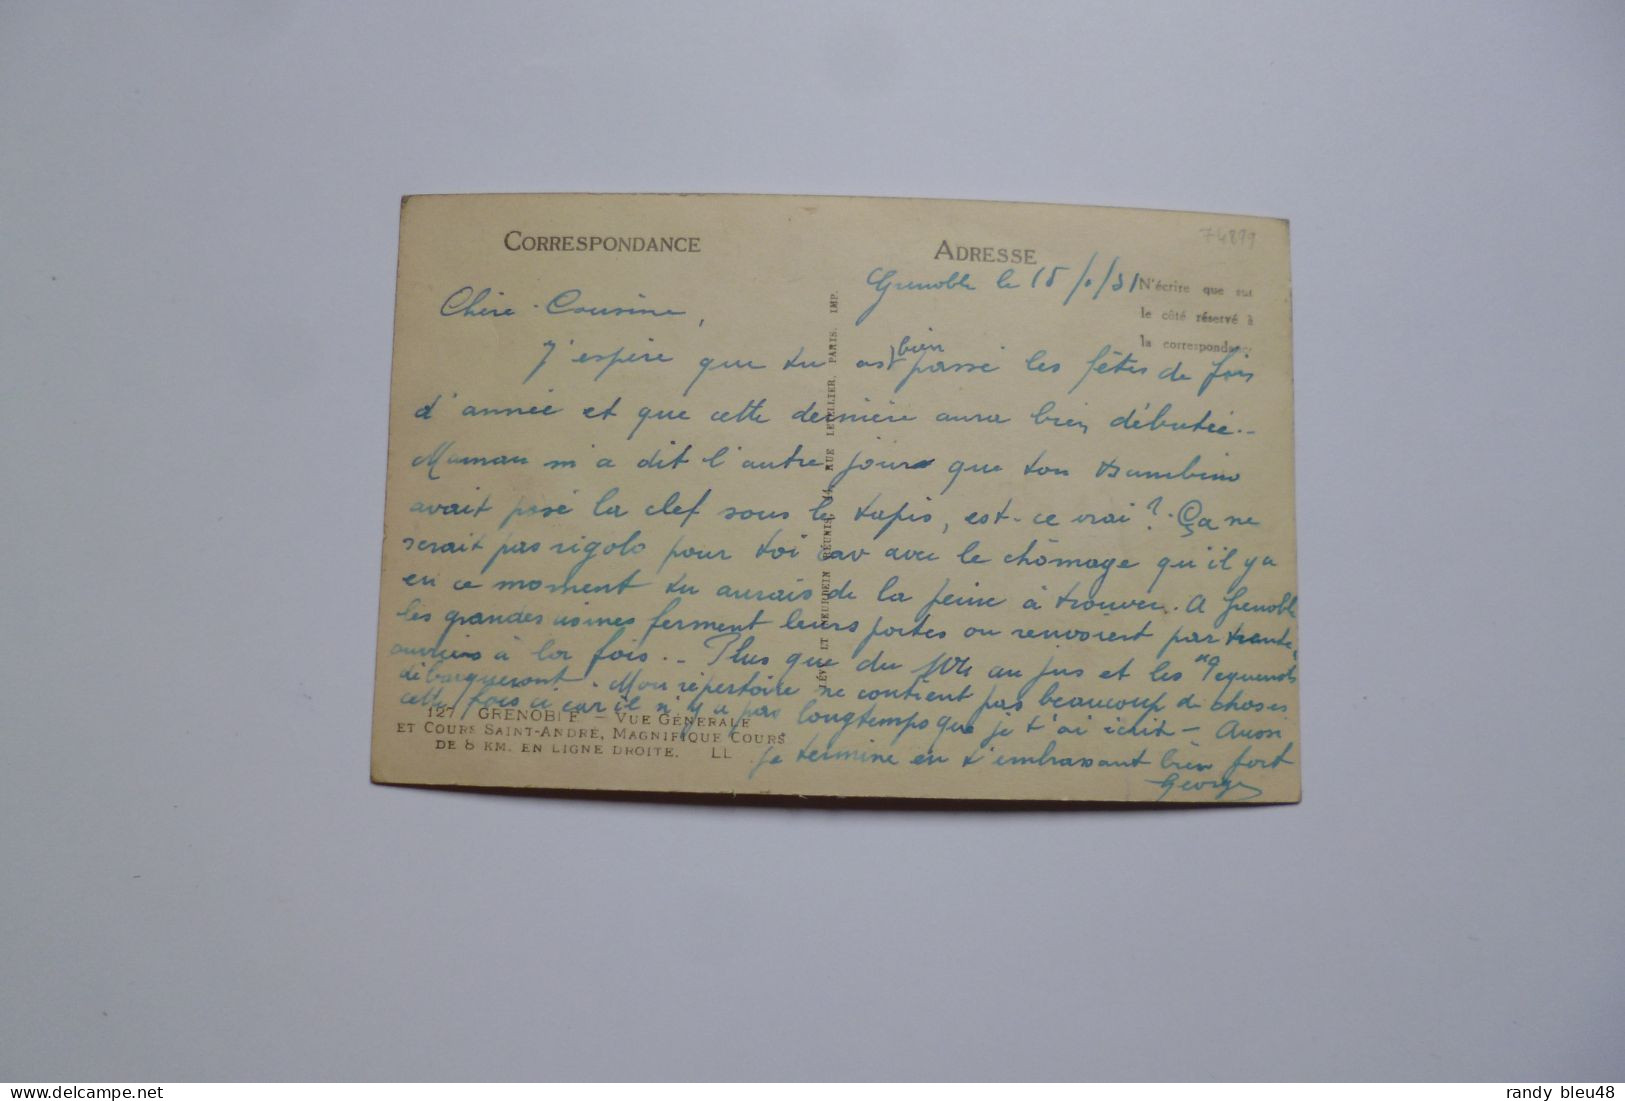 CORRESPONDANCE
ADRESSE
74899
Grenoble le 15/1/31
N'écrire que sur
le côté réservé à
la correspondance
Chère Cousine,
J'espère que tu as bien passé les fêtes de fin
d'année et que cette dernière aura bien débutée..
Maman m'a dit l'autre jour que ton Bambino
avait posé la clef sous le tapis, est-ce vrai? Ça ne
serait pas rigolo pour toi car avec le chômage qu'il y a
en ce moment tu aurais de la peine à trouver. A Grenoble
les grandes usines ferment leurs portes ou renvoient par trente
ouvriers à la fois.. Plus que du au jus et les
débarqueront. Mon répertoire ne contient pas beaucoup de choses
cette fois ci car il n'y a pas longtemps que je t'ai écrit - Aussi
je termine en t'embrassant bien fort
Georges
127 GRENOBLE – VUE GÉNÉRALE
ET COURS SAINT-ANDRÉ, MAGNIFIQUE COURS
DE 8 KM. EN LIGNE DROITE. LL
LÉVY ET NEURDEIN RÉUNIS, 44, RUE LETELLIER, PARIS. IMP.
randy bleu48